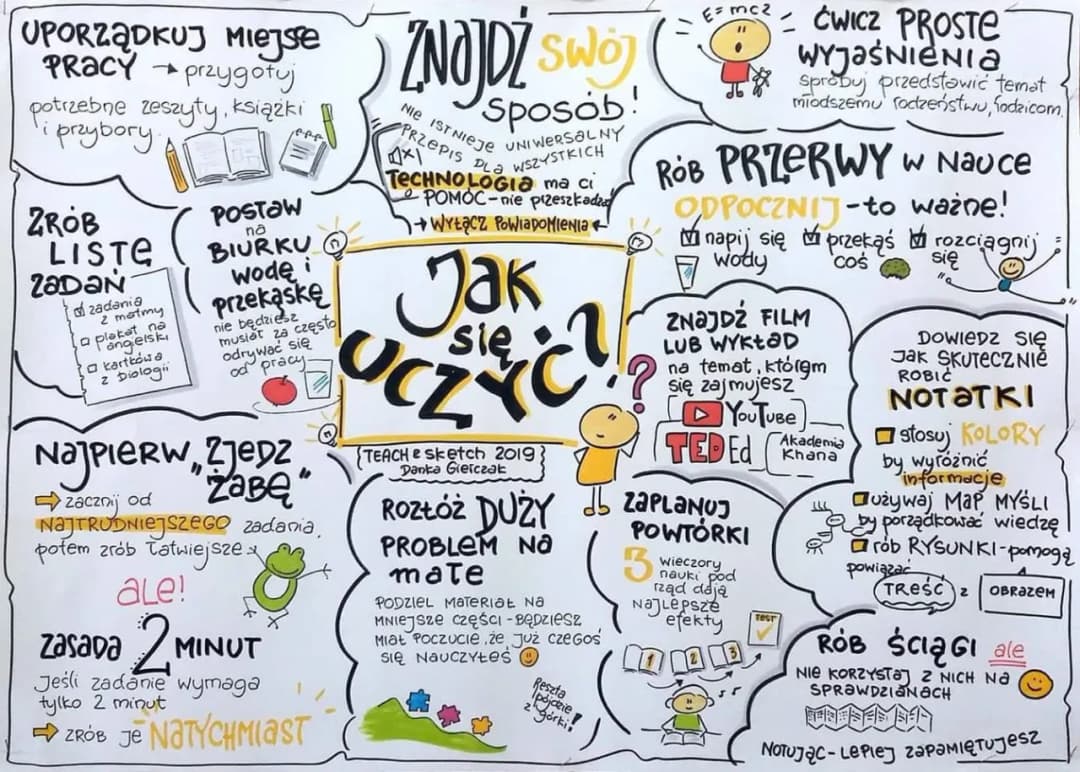 UPORZĄDKUJ MIEJSE
PRACY → przygotuj
potrzebne zeszyty, książki
i przybory.
ZNAJDŹ SWÓJ
SPOSÓB!
NIE ISTNIEJE UNIWERSALNY
PRZEPIS DLA WSZYSTKICH
TECHNOLOGIA ma ci
POMÓC - nie przeszkadzać
→ WYŁĄCZ POWIADOMIENIA ←
E=mc2
ĆWICZ PROSTE
WYJAŚNIENIA
spróbuj przedstawić temat
młodszemu rodzeństwu, rodzicom.
RÓB PRZERWY W NAUCE
ODPOCZNIJ - to ważne!
napij się
wody
przekąś
coś
rozciągnij
się
ZRÓB
LISTĘ
ZADAŃ
zadania
z matmy
plakat na
angielski
kartkówka
z biologii
POSTAW
na
BIURKU
wodę i
przekąskę
nie będziesz
musiał za często
odrywać się
od pracy
Jak
się
uczyć?
TEACH & SKETCH 2019
Danka Gierczak
ZNAJDŹ FILM
LUB WYKŁAD
na temat, którym
się zajmujesz
YouTube
TED Ed
Akademia
Khana
?
DOWIEDZ SIĘ
JAK SKUTECZNIE
ROBIĆ
NOTATKI
stosuj KOLORY
by wyróżnić
informacje
używaj MAP MYŚLI
by porządkować wiedzę
rób RYSUNKI - pomogą
powiązać
TREŚĆ z OBRAZEM
NAJPIERW „ZJEDZ
ŻABĘ"
zacznij od
NAJTRUDNIEJSZEGO zadania,
potem zrób łatwiejsze
ale!
ZASADA 2 MINUT
Jeśli zadanie wymaga
tylko 2 minut
ZRÓB JE NATYCHMIAST
ROZŁÓŻ DUŻY
PROBLEM NA
małe
PODZIEL MATERIAŁ NA
MNIEJSZE CZĘŚCI - BĘDZIESZ
MIAŁ POCZUCIE, ŻE JUŻ CZEGOŚ
SIĘ NAUCZYŁEŚ
Reszta
pójdzie
z górki!
ZAPLANUJ
POWTÓRKI
3 wieczory
nauki pod
rząd dają
NAJLEPSZE
efekty
TEST
1 2 3
RÓB ŚCIĄGI ale
NIE KORZYSTAJ Z NICH NA
SPRAWDZIANACH
NOTUJĄC - LEPIEJ ZAPAMIĘTUJESZ